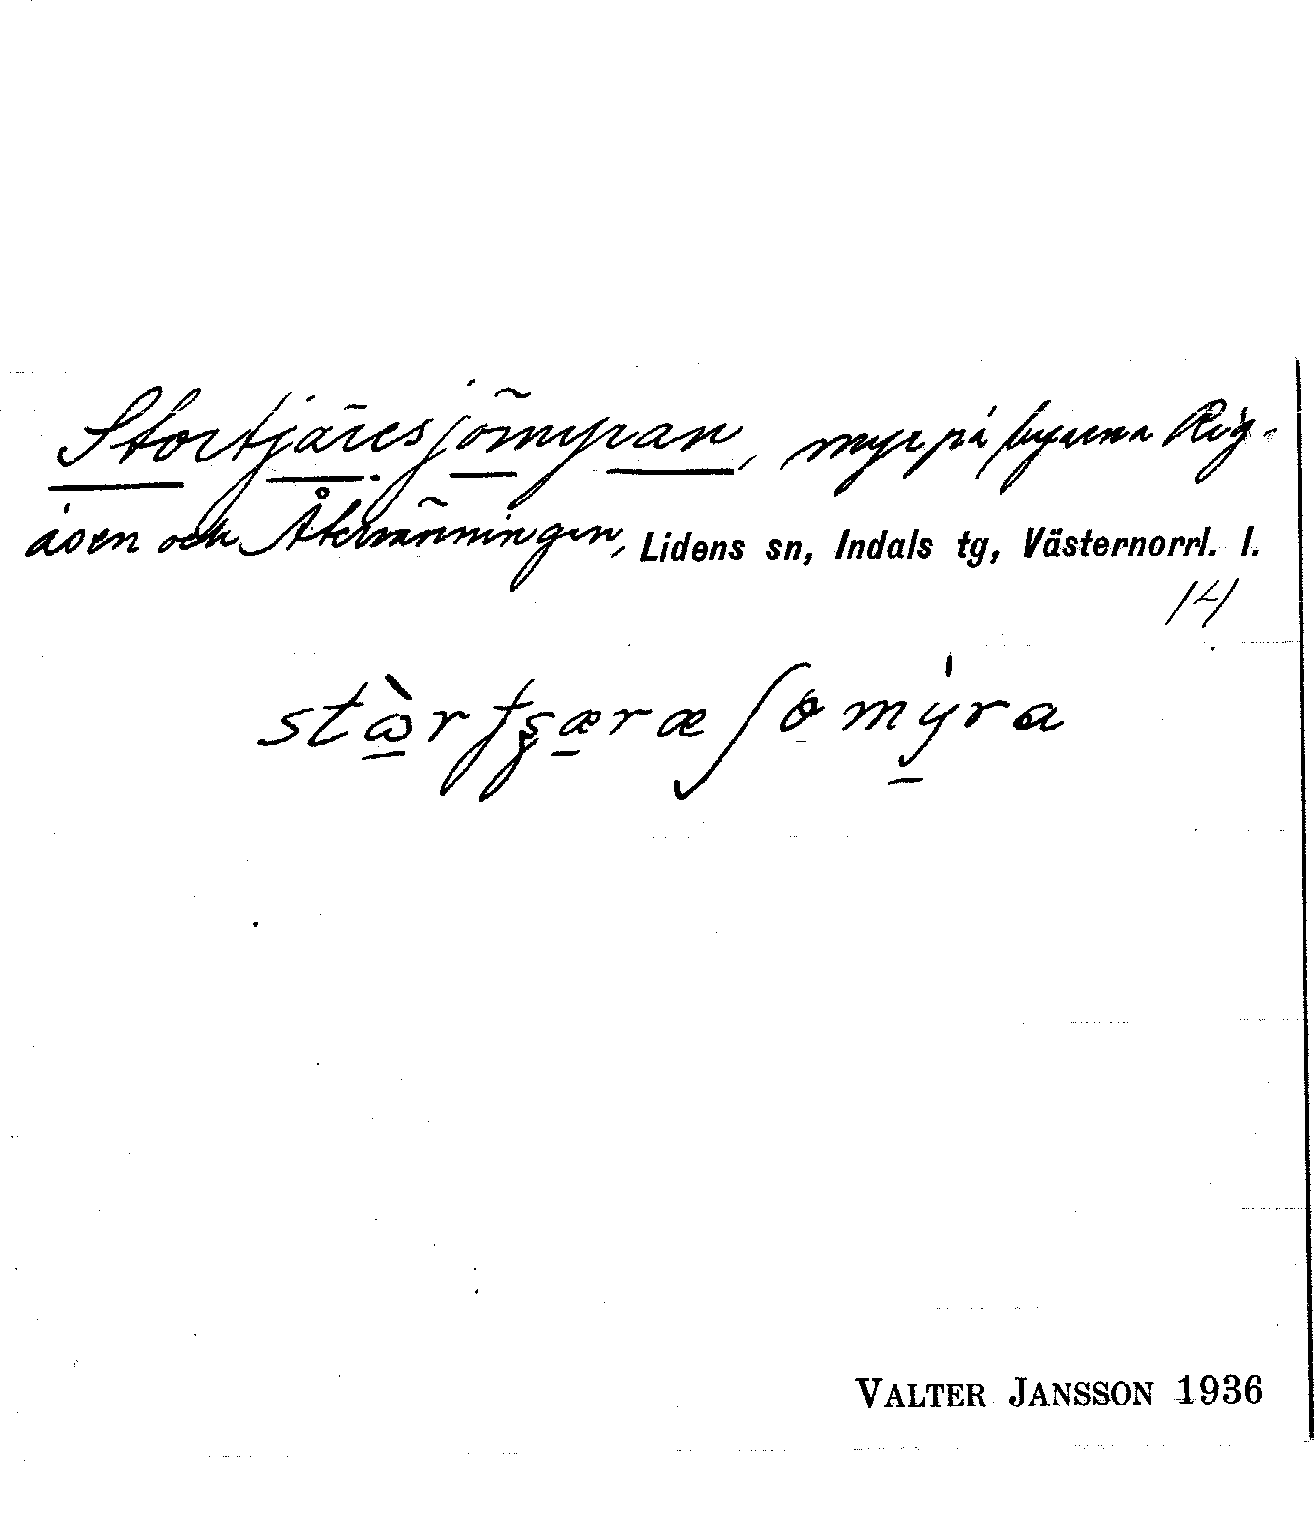 Stortjäresjömyran, myr på byarna Rig-
åsen och Åkermänningen, Lidens sn, Indals tg, Västernorrl. l.
14
VALTER JANSSON 1936